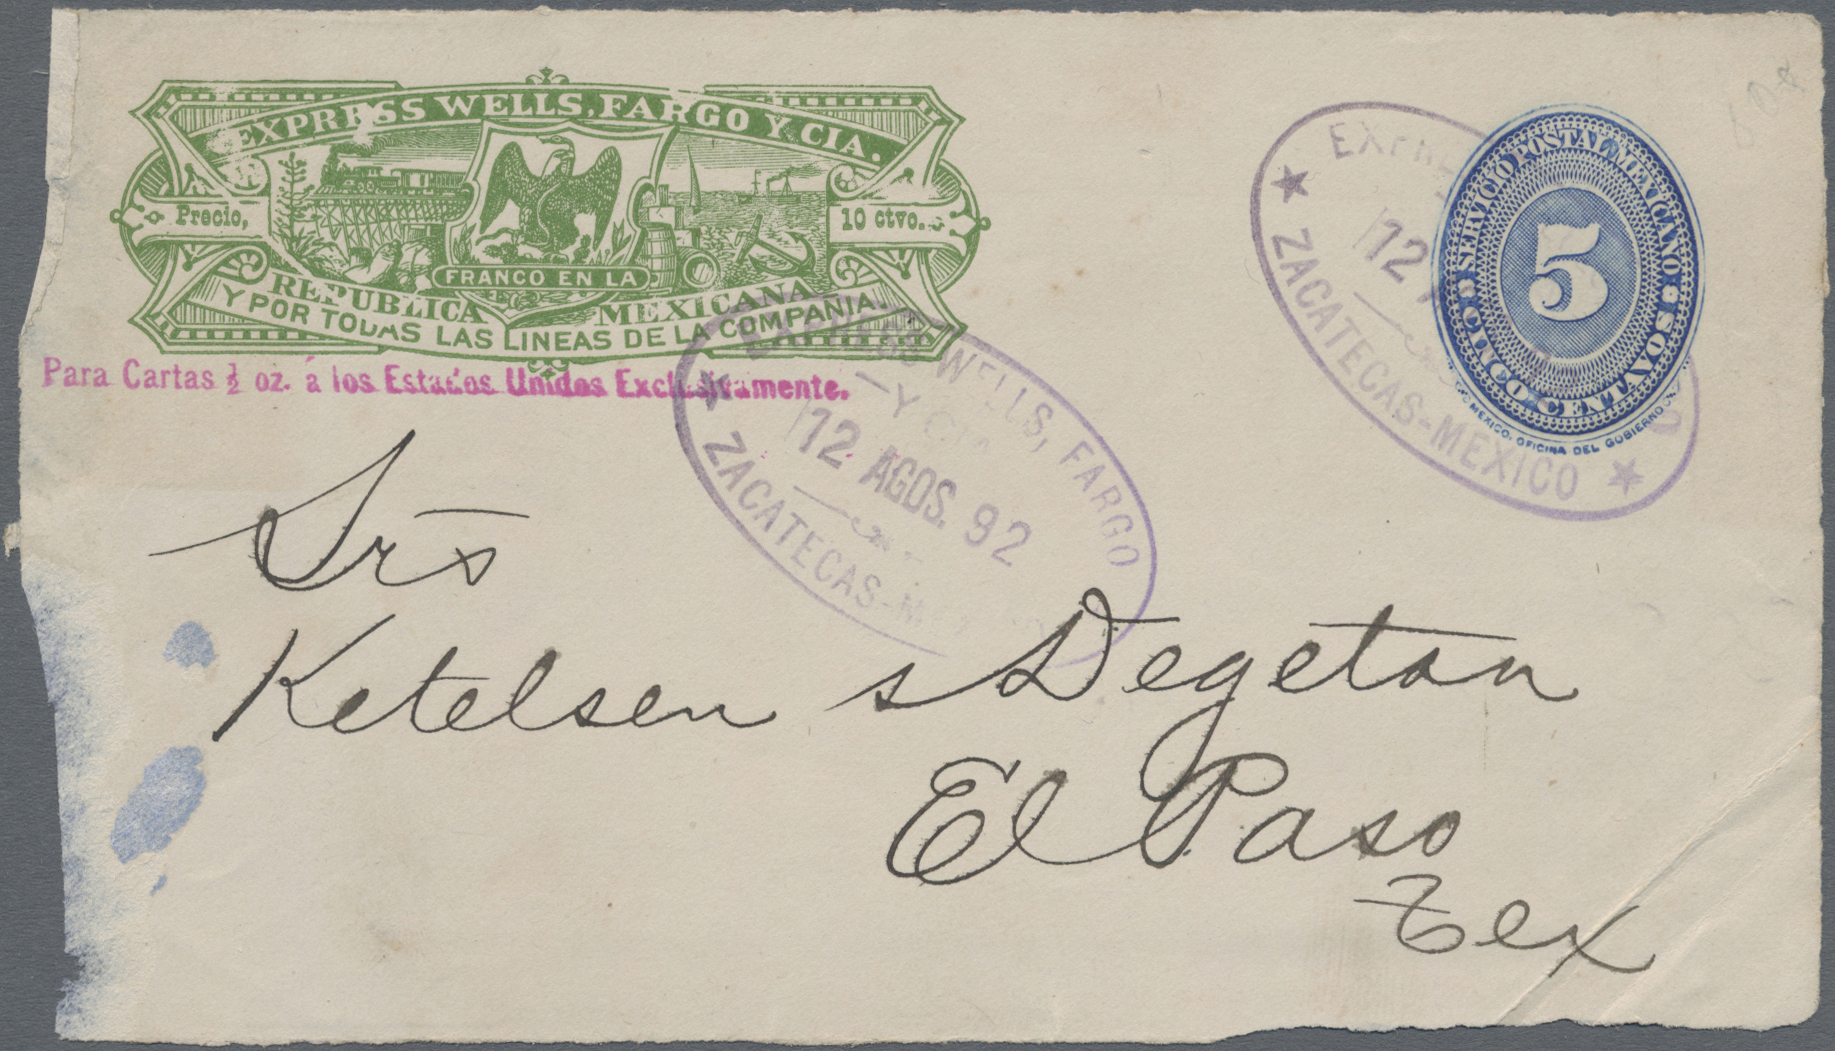 EXPRESS WELLS, FARGO Y CIA.
Precio,
10 ctvo.s
FRANCO EN LA
REPUBLICA MEXICANA
Y POR TODAS LAS LINEAS DE LA COMPANIA.
Para Cartas ½ oz. á los Estados Unidos Exclusivamente.
EXPRESS WELLS, FARGO
Y CIA
12 AGOS. 92
ZACATECAS-MEXICO
EXPRESS
12
ZACATECAS-MEXICO
SERVICIO POSTAL MEXICANO
5
CINCO CENTAVOS
MEXICO. OFICINA DEL GOBIERNO
Srs
Ketelsen s Degetan
El Paso
Tex